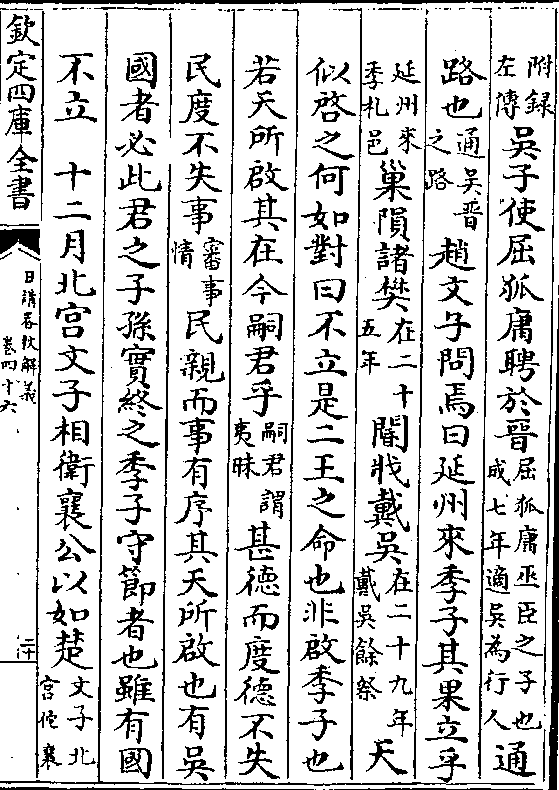 附録左傳吳子使屈狐庸聘於晉屈狐庸巫臣之子也成七年適吳為行人通
路也通吳晉之路趙文子問焉曰延州來季子其果立乎
延州來季札邑巢隕諸樊在二十五年閽戕戴吳在二十九年戴吳餘祭天
似啓之何如對曰不立是二王之命也非啟季子也
若天所啟其在今嗣君乎嗣君謂夷昧甚德而度德不失
民度不失事審事情民親而事有序其天所啟也有吳
國者必此君之子孫實終之季子守節者也雖有國
不立 十二月北宮文子相衛襄公以如楚文子北宮佗襄
欽定四庫全書
日講春秋解義
卷四十六
二十